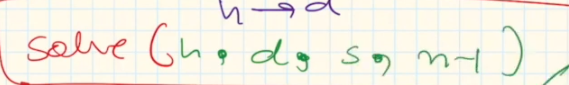 h → d
solve (h, d, s, n-1)